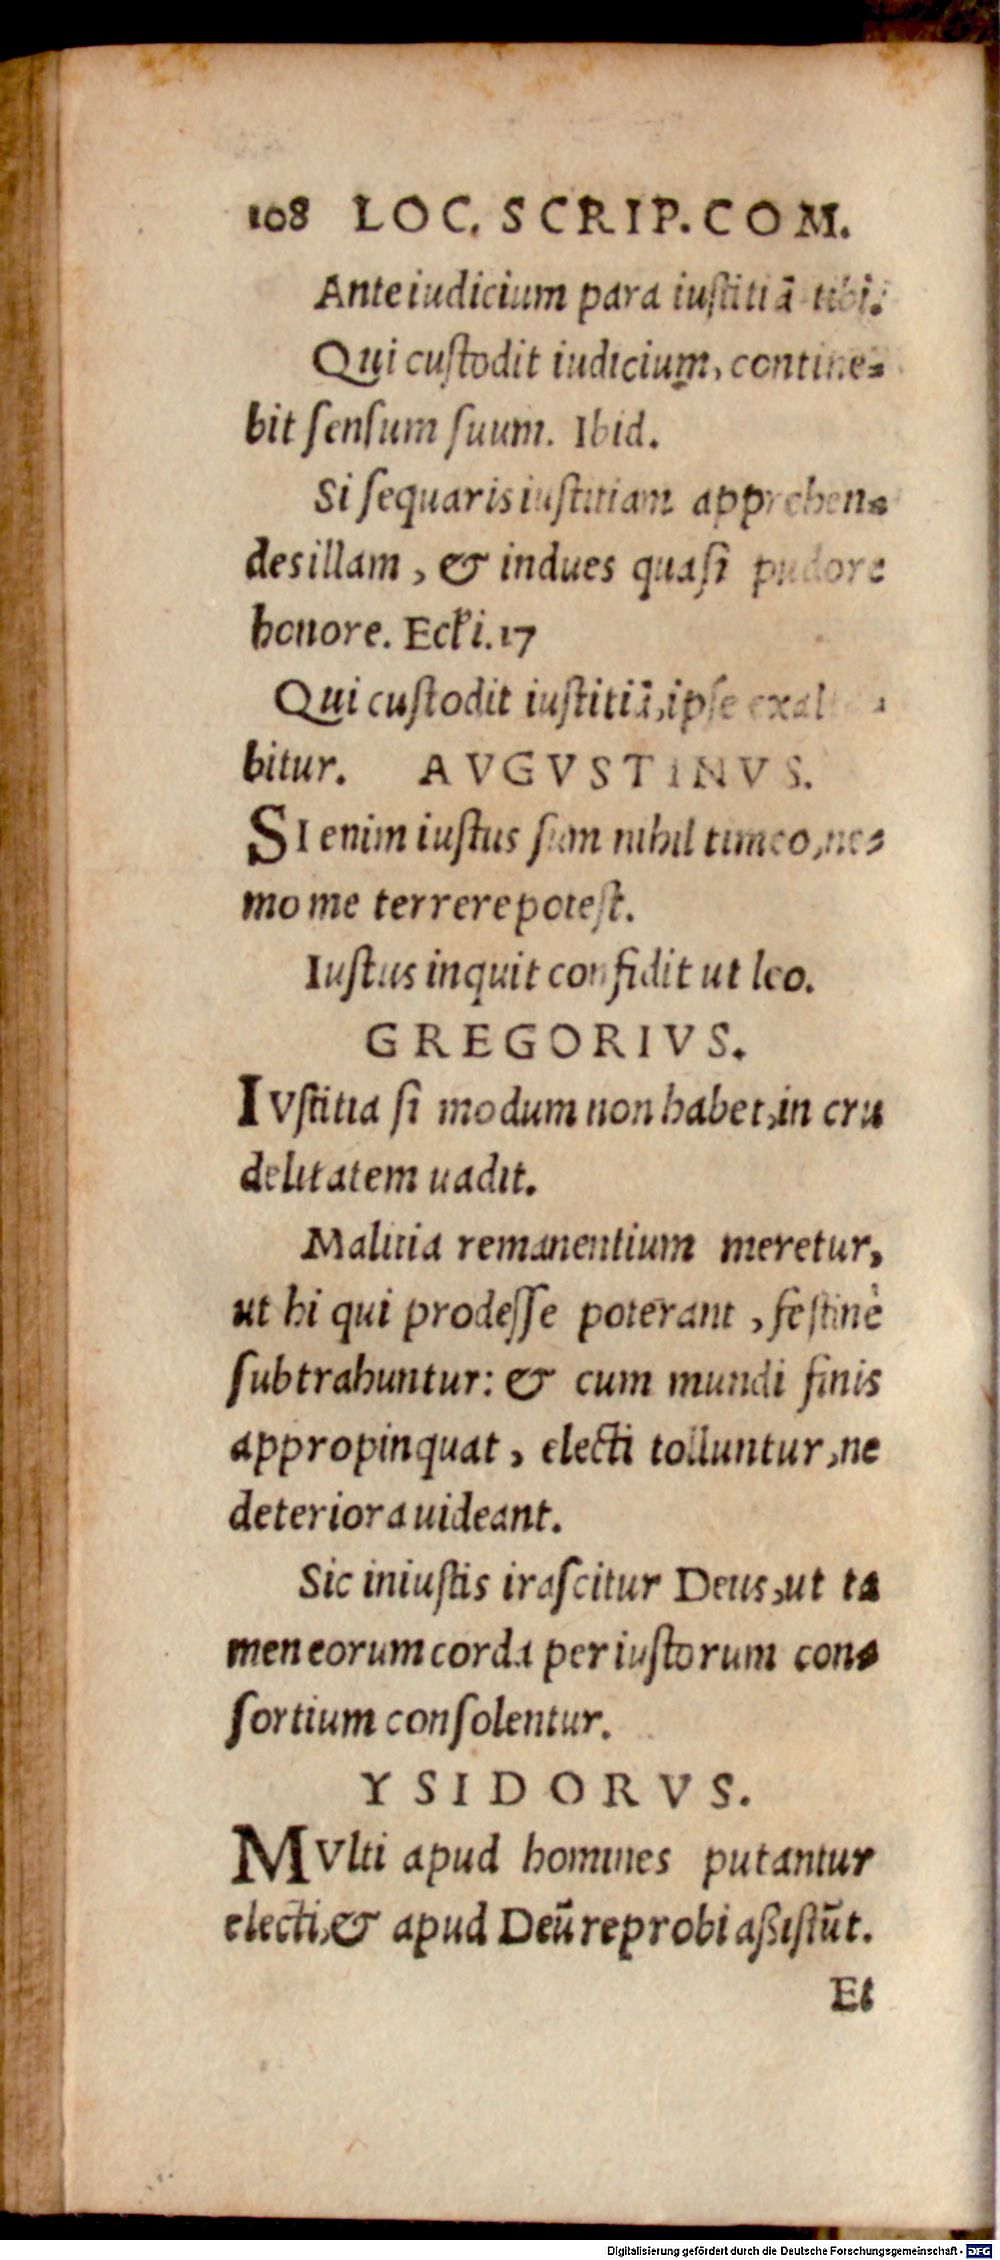 108 LOC. SCRIP. COM.
Ante iudicium para iuſtitiā tibi.
Qui cuſtodit iudicium, contine-
bit ſenſum ſuum. Ibid.
Si ſequaris iuſtitiam apprehen-
des illam, & indues quaſi pudore
honore. Eccłi. 17
Qui cuſtodit iuſtitiā, ipſe
bitur. AVGVSTINVS.
SI enim iuſtus ſum nihil timeo, ne-
mo me terrere poteſt.
Iuſtus inquit confidit ut leo.
GREGORIVS.
IVſtitia ſi modum non habet, in cru
delitatem uadit.
Malitia remanentium meretur,
ut hi qui prodeſſe poterant, feſtinè
ſubtrahuntur: & cum mundi finis
appropinquat, electi tolluntur, ne
deteriora uideant.
Sic iniuſtis iraſcitur Deus, ut ta
men eorum corda per iuſtorum con-
ſortium conſolentur.
YSIDORVS.
MVlti apud homines putantur
electi, & apud Deū reprobi aßiſtūt.
Et
Digitalisierung gefördert durch die Deutsche Forschungsgemeinschaft - DFG